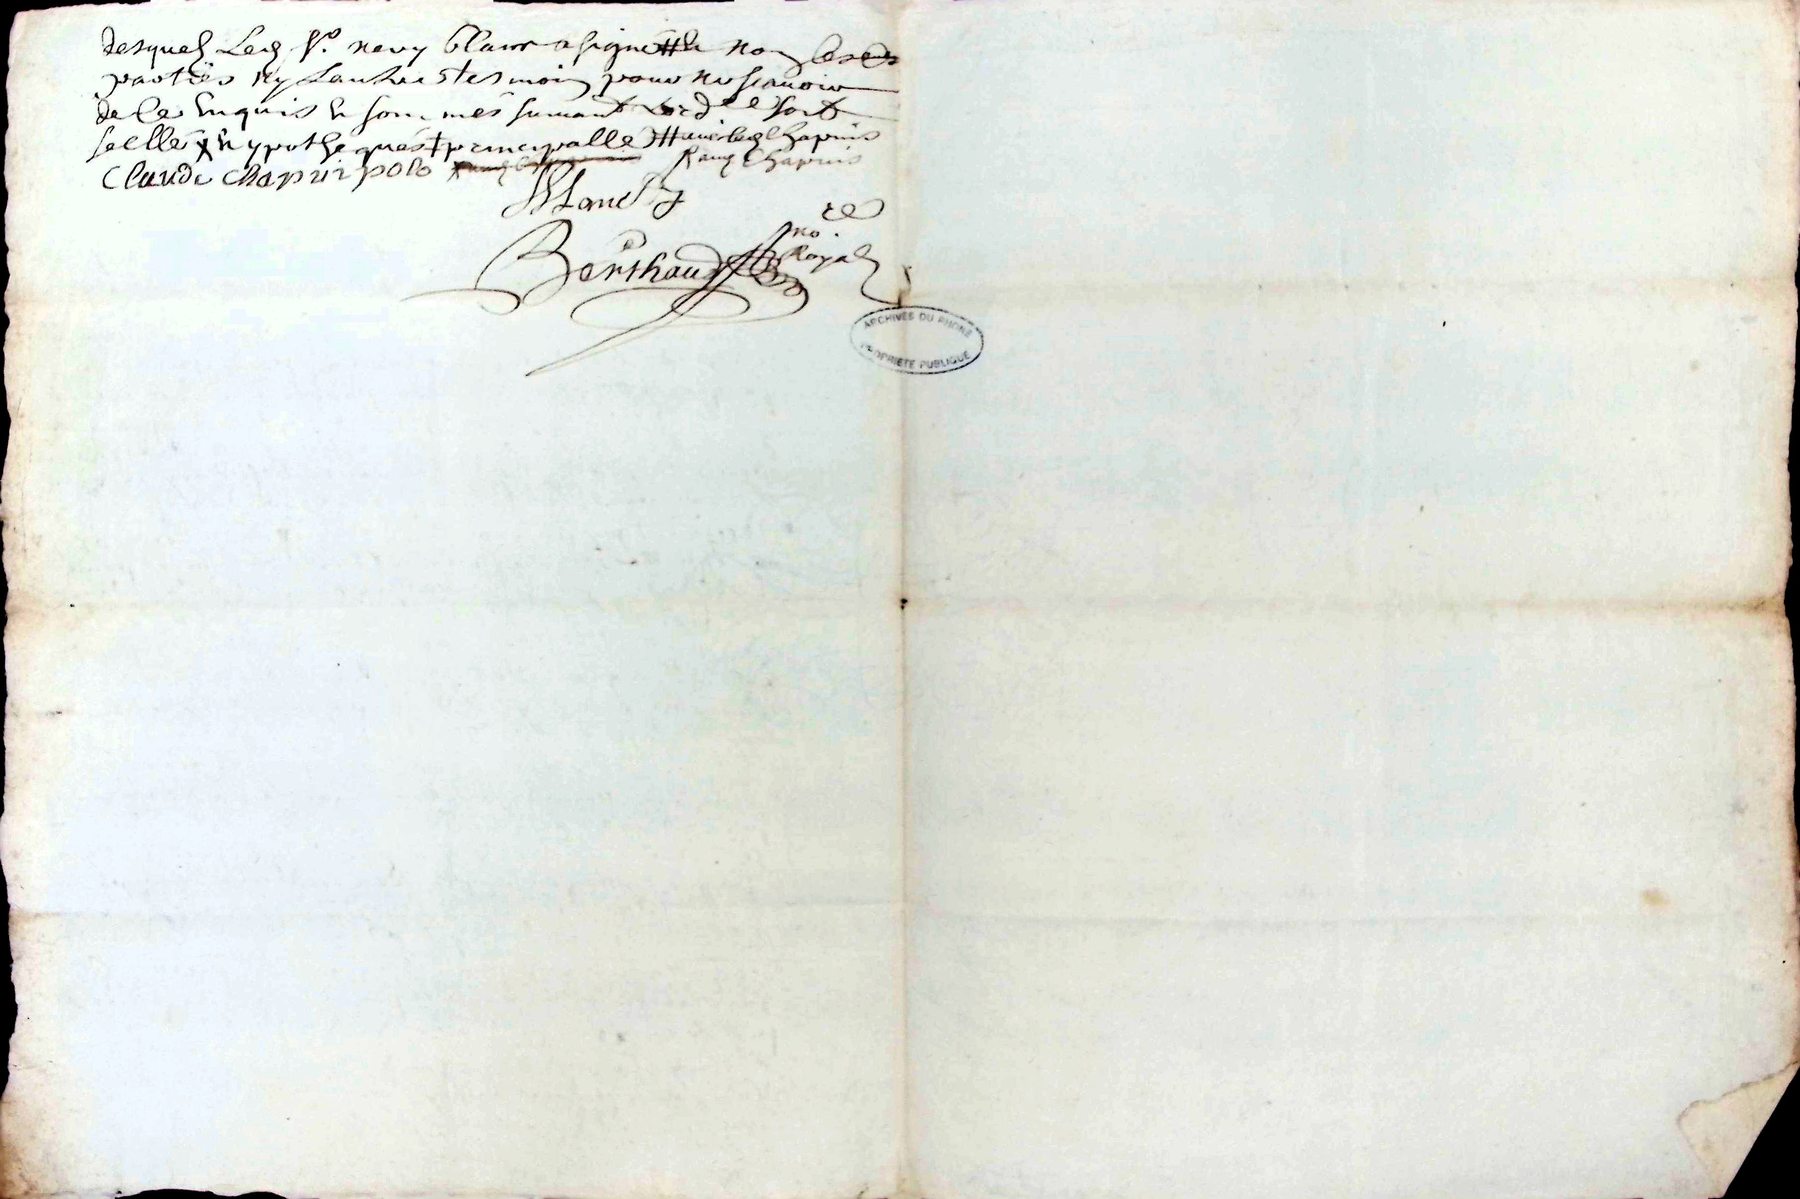 desquels Led Sr. nevy blanc a signé # & non lesd
parties ny lautre tesmoin pour ne scauoir
de ce enquis & sommés suiuant lord
scellé & ypothequés + principalle # auec led Chapuis
Claude chapuis polo
Ramy Chapuis
Blanc
no. re
Royal
Berthaud
ARCHIVES DU RHONE
PROPRIETE PUBLIQUE